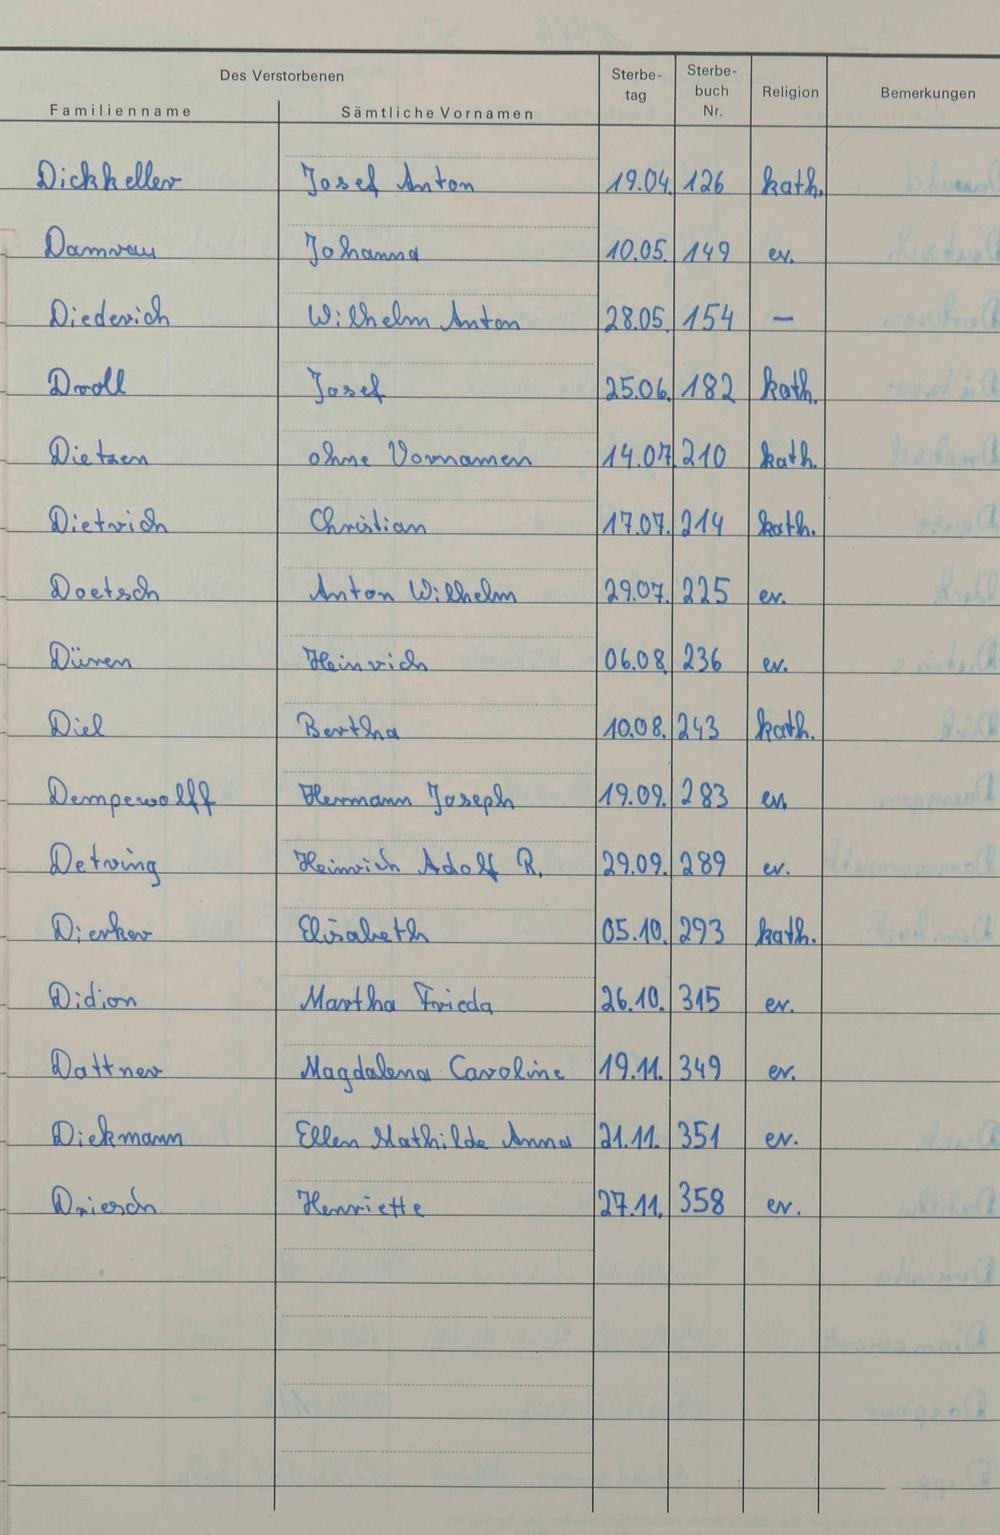 Des Verstorbenen
Familienname Sämtliche Vornamen Sterbe-tag Sterbe-buch Nr. Religion Bemerkungen
Dickkeller Josef Anton 19.04. 126 kath.
Damrau Johanna 10.05. 149 ev.
Diederich Wilhelm Anton 28.05. 154 —
Droll Josef 25.06. 182 kath.
Dietzen ohne Vornamen 14.07 210 kath.
Dietrich Christian 17.07. 214 kath.
Doetsch Anton Wilhelm 29.07. 225 ev.
Düren Heinrich 06.08 236 ev.
Diel Bertha 10.08. 243 kath.
Dempewolff Hermann Joseph 19.09. 283 ev.
Detring Heinrich Adolf R. 29.09. 289 ev.
Dierker Elisabeth 05.10. 293 kath.
Didion Martha Frieda 26.10. 315 ev.
Dattner Magdalena Caroline 19.11. 349 ev.
Diekmann Ellen Mathilde Anna 21.11. 351 ev.
Driesch Henriette 27.11. 358 ev.